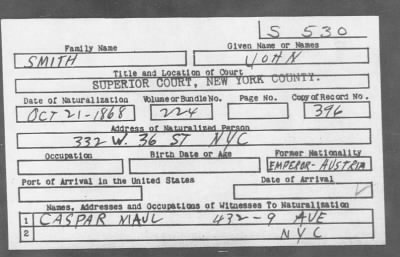 S 530
Family Name Given Name or Names
SMITH JOHN
Title and Location of Court
SUPERIOR COURT, NEW YORK COUNTY.
Date of Naturalization Volume or Bundle No. Page No. Copy of Record No.
OCT 21-1868 224 396
Address of Naturalized Person
332 W. 36 ST NYC
Occupation Birth Date or Age Former Nationality
EMPEROR-AUSTRIA
Port of Arrival in the United States Date of Arrival
Names, Addresses and Occupations of Witnesses To Naturalization
1 CASPAR MAUL 432-9 AVE
2 NYC